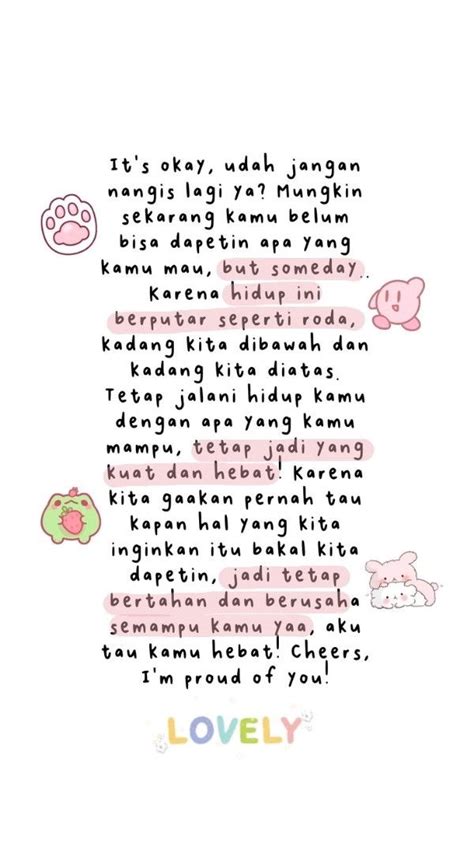 It's okay, udah jangan
nangis lagi ya? Mungkin
sekarang kamu belum
bisa dapetin apa yang
kamu mau, but someday..
Karena hidup ini
berputar seperti roda,
kadang kita dibawah dan
kadang kita diatas.
Tetap jalani hidup kamu
dengan apa yang kamu
mampu, tetap jadi yang
kuat dan hebat! Karena
kita gaakan pernah tau
kapan hal yang kita
inginkan itu bakal kita
dapetin, jadi tetap
bertahan dan berusaha
semampu kamu yaa, aku
tau kamu hebat! Cheers,
I'm proud of you!
LOVELY